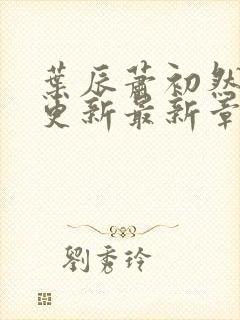 葉辰蕭初然
更新最新章
劉秀玲